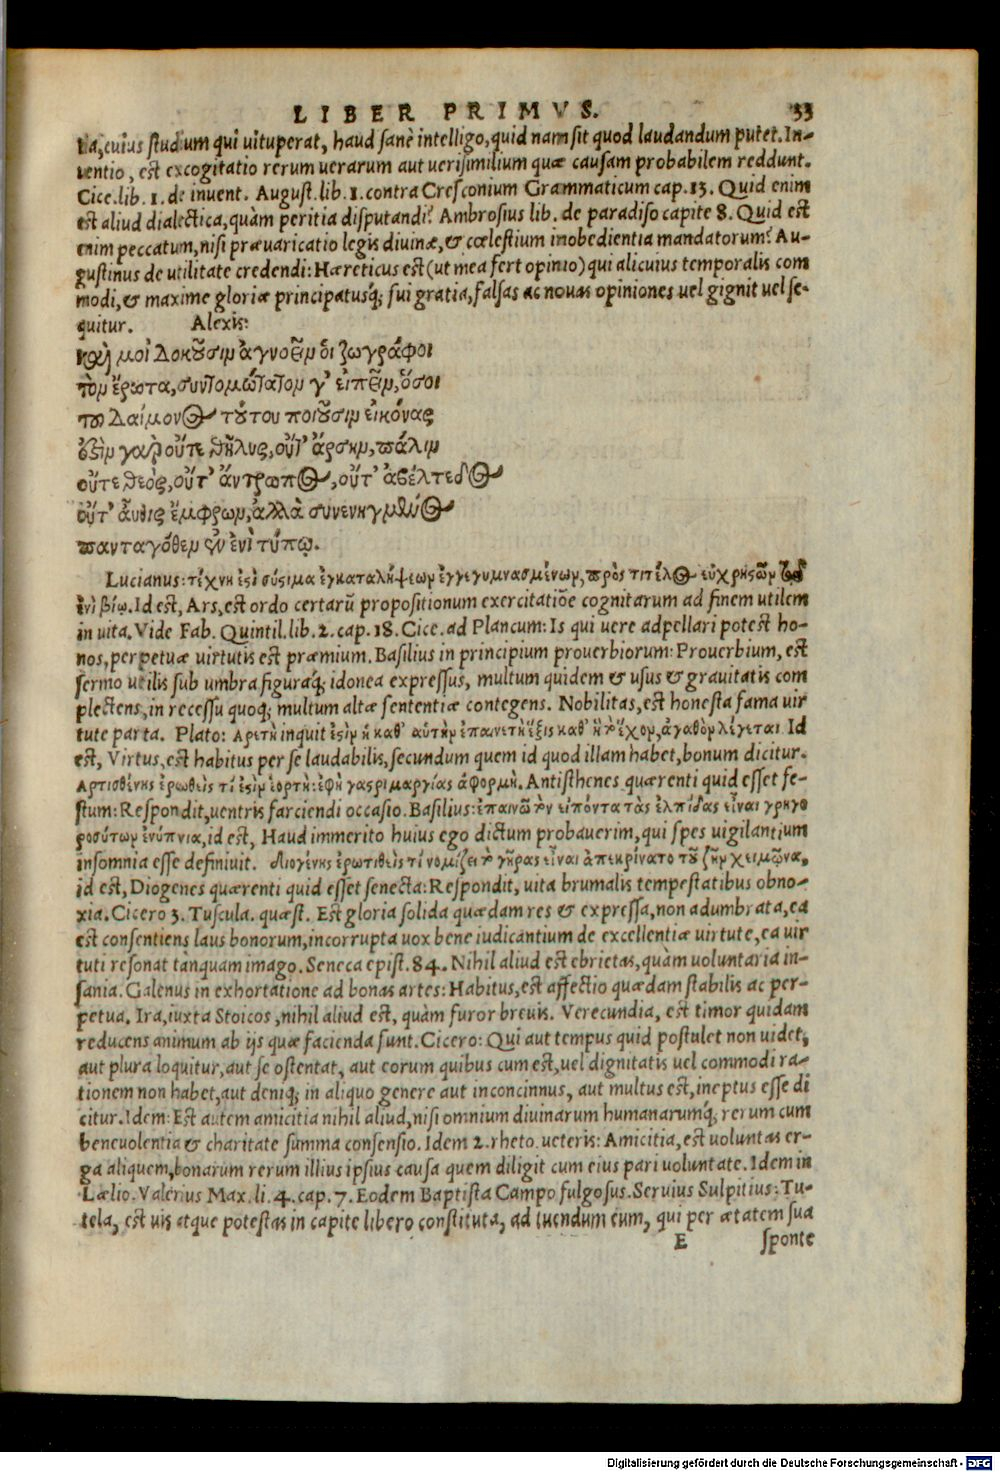 LIBER PRIMVS. 33
ta, cuius studium qui uituperat, haud sanè intelligo, quid nam sit quod laudandum putet. In-
uentio, est excogitatio rerum uerarum aut uerisimilium quæ causam probabilem reddunt.
Cice. lib. 1. de inuent. August. lib. 1. contra Cresconium Grammaticum cap. 13. Quid enim
est aliud dialectica, quàm peritia disputandi? Ambrosius lib. de paradiso capite 8. Quid est
enim peccatum, nisi præuaricatio legis diuinæ, & cœlestium inobedientia mandatorum? Au-
gustinus de utilitate credendi: Hæreticus est (ut mea fert opinio) qui alicuius temporalis com
modi, & maxime gloriæ principatusq́; sui gratia, falsas ac nouas opiniones uel gignit uel se-
quitur. Alexis:
καί μοι δοκοῦσιν ἀγνοεῖν ὁι ζωγράφοι
τὸν ἔρωτα, συντομώτατον γ' ἐιπεῖν, ὅσοι
τοῦ δαίμονος τούτου ποιοῦσιν ἐικόνας
ἐςὶν γαρ οὔτε θῆλυς, οὔτ' ἄρσην, πάλιν
οὔτε θεὸς, οὔτ' ἄντρωπος, οὔτ' ἀβέλτερος
οὔτ' ἆυθις ἔμφρων, ἀλλὰ συνενηγμένος
πανταγόθεν ἐν ἑνὶ τύπῳ.
Lucianus: τέχνη ἐςὶ σύςιμα ἐγκαταλήψεων ἐγγεγυμνασμένων, πρὸς τι τέλος εὐχρηςῶν τῶν
ἐνὶ βίῳ. Id est, Ars, est ordo certarū propositionum exercitatiōe cognitarum ad finem utilem
in uita. Vide Fab. Quintil. lib. 2. cap. 18. Cice. ad Plancum: Is qui uere adpellari potest ho-
nos, perpetuæ uirtutis est præmium. Basilius in principium prouerbiorum: Prouerbium, est
sermo utilis sub umbra figuraq́; idonea expressus, multum quidem & usus & grauitatis com
plectens, in recessu quoq; multum altæ sententiæ contegens. Nobilitas, est honesta fama uir
tute parta. Plato: Αρετὴ inquit ἐςὶν ἡ καθ' αὑτὴν ἐπαινετὴ ἕξις καθ' ἣν τὸ ἔχον, ἀγαθὸν λέγεται. Id
est, Virtus, est habitus per se laudabilis, secundum quem id quod illam habet, bonum dicitur.
Αρτισθένης ἐρωθεὶς τί ἐςὶν ἑορτὴ: ἐφὴ γαςριμαργίας ἀφορμὴ. Antisthenes quærenti quid esset fe-
stum: Respondit, uentris farciendi occasio. Basilius: ἐπαινῶ τὸν εἰπόντα τὰς ἐλπίδας εἶναι γρηγο
ρούτων ἐνύπνια, id est, Haud immerito huius ego dictum probauerim, qui spes uigilantium
insomnia esse definiuit. Διογένης ἐρωτιθεὶς τί νομίζει τὸ γῆρας εἶναι ἀπεκρίνατο τοῦ ζῆν χειμῶνα,
id est, Diogenes quærenti quid esset senecta: Respondit, uita brumalis tempestatibus obno-
xia. Cicero 3. Tuscula. quæst. Est gloria solida quædam res & expressa, non adumbrata, ea
est consentiens laus bonorum, incorrupta uox bene iudicantium de excellentiæ uirtute, ea uir
tuti resonat tanquam imago. Seneca epist. 84. Nihil aliud est ebrietas, quàm uoluntaria in-
sania. Galenus in exhortatione ad bonas artes: Habitus, est affectio quædam stabilis ac per-
petua. Ira, iuxta Stoicos, nihil aliud est, quàm furor breuis. Verecundia, est timor quidam
reducens animum ab ijs quæ facienda sunt. Cicero: Qui aut tempus quid postulet non uidet,
aut plura loquitur, aut se ostentat, aut eorum quibus cum est, uel dignitatis uel commodi ra-
tionem non habet, aut deniq; in aliquo genere aut inconcinnus, aut multus est, ineptus esse di
citur. Idem: Est autem amicitia nihil aliud, nisi omnium diuinarum humanarumq́; rerum cum
beneuolentia & charitate summa consensio. Idem 2. rheto. ueteris: Amicitia, est uoluntas er-
ga aliquem, bonarum rerum illius ipsius causa quem diligit cum eius pari uoluntate. Idem in
Lælio. Valerius Max. li. 4. cap. 7. Eodem Baptista Campofulgosus. Seruius Sulpitius: Tu-
tela, est uis atque potestas in capite libero constituta, ad tuendum eum, qui per ætatem sua
E sponte
Digitalisierung gefördert durch die Deutsche Forschungsgemeinschaft - DFG